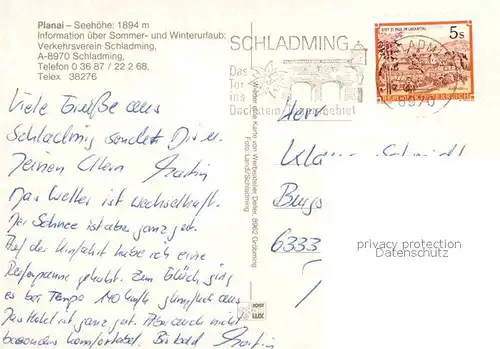 Planai – Seehöhe: 1894 m
Information über Sommer- und Winterurlaub:
Verkehrsverein Schladming,
A-8970 Schladming,
Telefon 0 36 87 / 22 2 68,
Telex 38276
Viele Grüße aus
Schladming sendet Dir u.
Deinen Eltern Martin
Das Wetter ist wechselhaft.
Der Schnee ist aber ganz gut.
Auf der Hinfahrt habe ich eine
Reifenpanne gehabt. Zum Glück ging
es bei Tempo 140 km/h glimpflich aus
Das Hotel ist ganz gut. Aber auch nicht
besonders komfortabel. Bis bald Martin
SCHLADMING
Das
Tor
ins
Dachstein-Tauerngebiet
5s
REPUBLIK ÖSTERREICH
SCHLADMING
8970
Foto: Landl/Schladming
Herrn
Klaus Schmidt
6333
privacy protection
Datenschutz